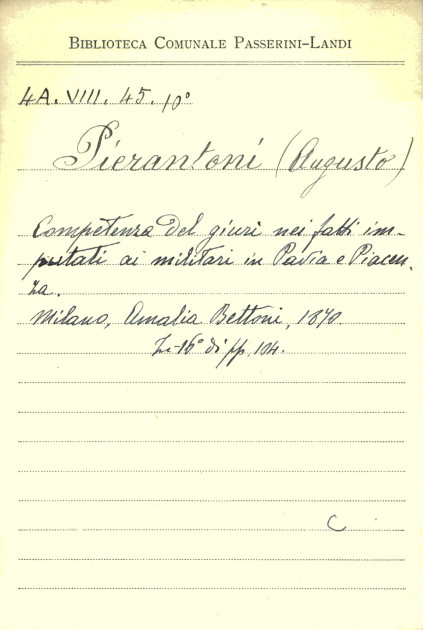 BIBLIOTECA COMUNALE PASSERINI-LANDI
4A. VIII. 45. 10°
Pierantoni (Augusto)
Competenza del giurì nei fatti im-
putati ai militari in Pavia e Piacen-
za.
Milano, Amalia Bettoni, 1870.
In-16° di pp. 104.
C